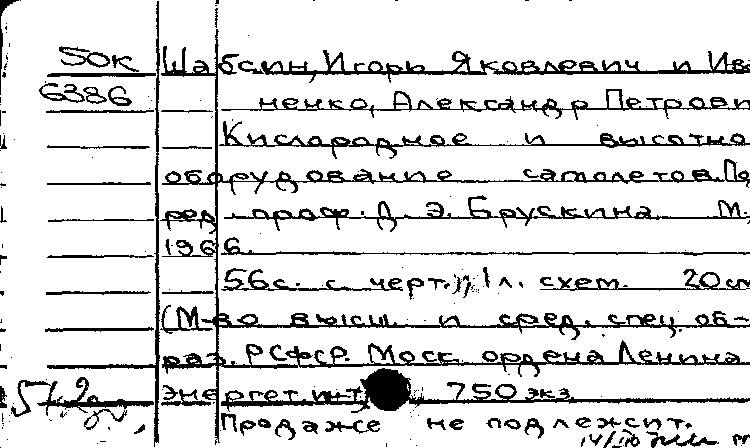 50К Шабсин, Игорь Яковлевич и Ива
6386 ненко, Александр Петрови
Кислородное и высотно
оборудование самолетов. По
ред. проф. Д. Э. Брускина. М.,
1966.
56с. с черт., 1 л. схем. 20см
(М-во высш. и сред. спец. об-
раз. РСФСР. Моск. ордена Ленина
энергет. ин-т 750 экз.
Продаже не подлежит.